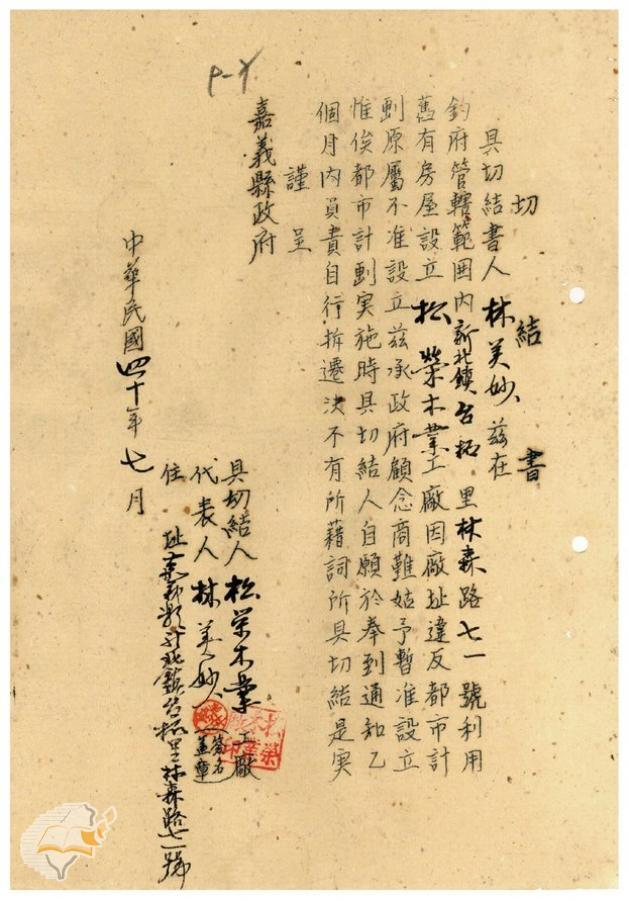 切結書
具切結書人林美妙茲在
鈞府管轄範囲内新北鎮台拓里林森路七一號利用
舊有房屋設立松榮木業工廠因廠址違反都市計
劃原屬不准設立茲承政府顧念商難姑予暫准設立
惟俟都市計劃实施時具切結人自願於奉到通知乙
個月内負責自行拆遷決不有所藉詞所具切結是実
謹呈
嘉義縣政府
具切結人松榮木業工廠
代表人林美妙
簽名
蓋章
住址嘉義縣新北鎮台拓里林森路七一號
中華民國四十年七月